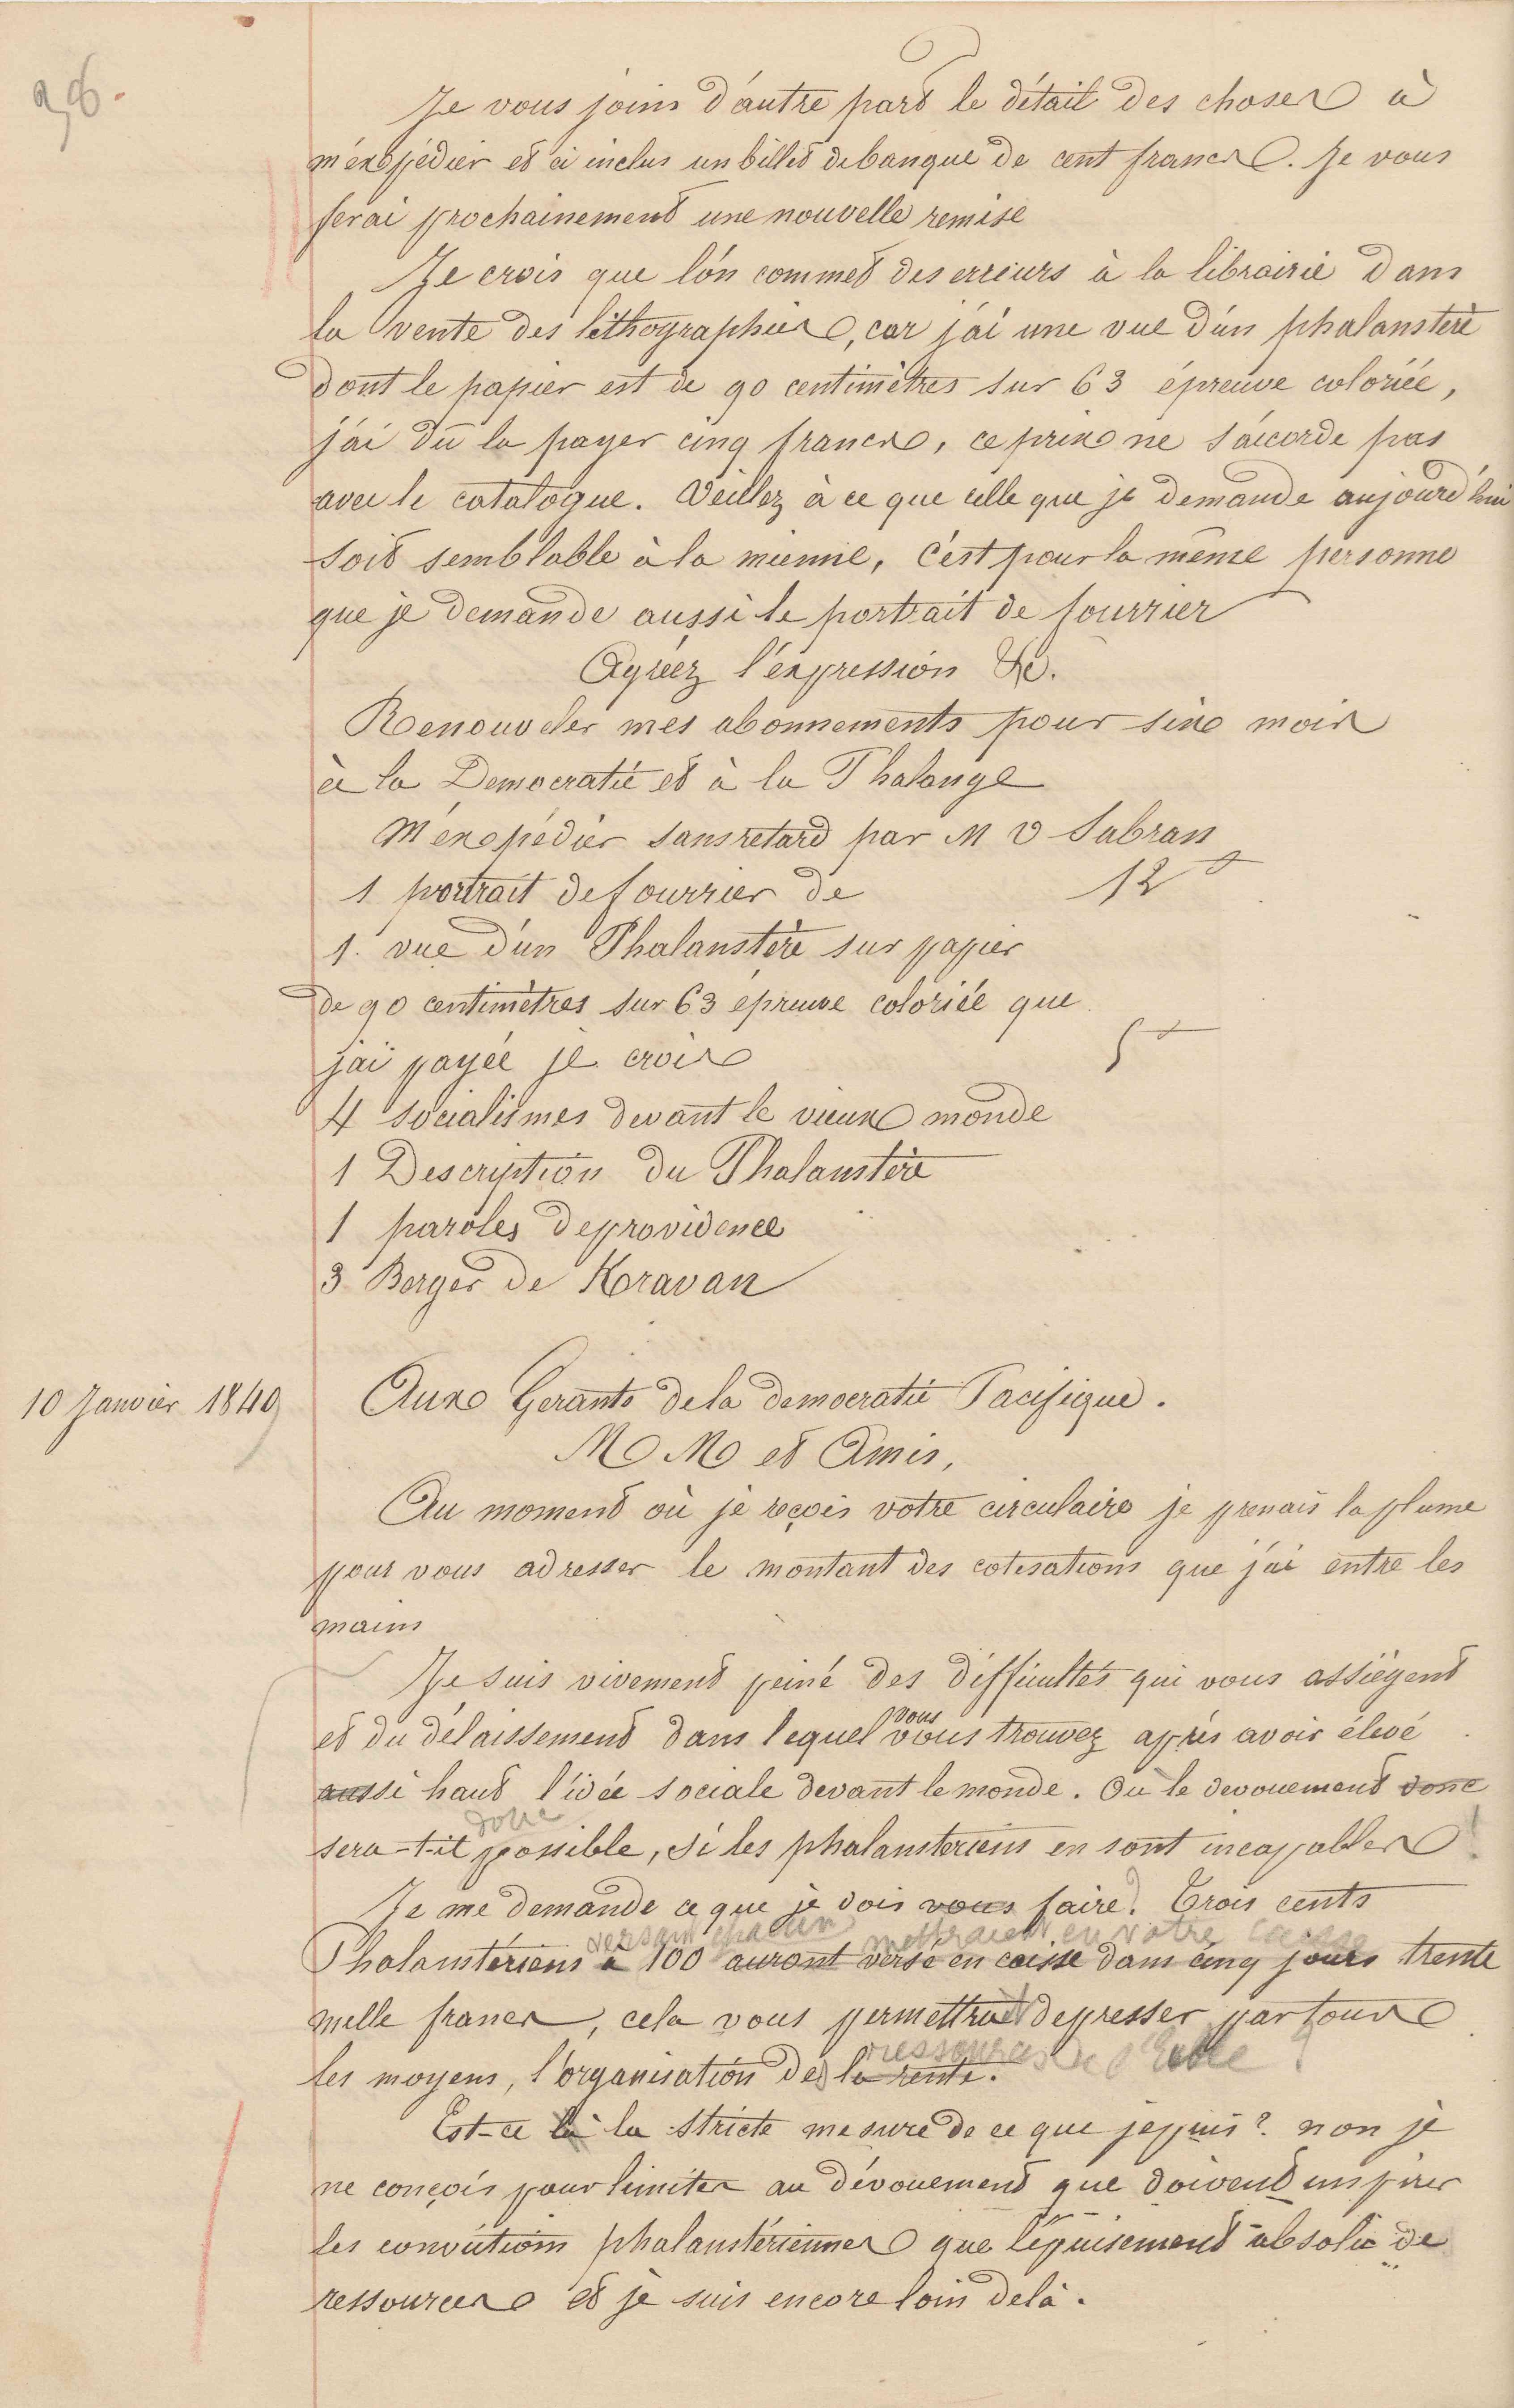 96.
Je vous joins d'autre part le détail des choses à
m'expédier et ci inclus un billet de banque de cent francs. Je vous
ferai prochainement une nouvelle remise
Je crois que l'on commet des erreurs à la librairie dans
la vente des lithographies, car j'ai une vue d'un phalanstère
dont le papier est de 90 centimètres sur 63 épreuve coloriée,
j'ai dû la payer cinq francs, ce prix ne s'accorde pas
avec le catalogue. Veillez à ce que celle que je demande aujourd'hui
soit semblable à la mienne, c'est pour la même personne
que je demande aussi le portrait de fourrier
Agréez l'expression &c.
Renouveler mes abonnements pour six mois
à la Democratie et à la Phalange
M'expédier sans retard par M V Sabran
1 portrait de fourrier de 12 f
1. vue d'un Phalanstère sur papier
de 90 centimètres sur 63 épreuve coloriée que
j'ai payée je crois 5 f
4 socialismes devant le vieux monde
1 Description du Phalanstère
1 paroles de providence
3 Berger de Kravan
10 Janvier 1849
Aux Gerants de la democratie Pacifique.
M M et Amis,
Au moment où je reçois votre circulaire je prenais la plume
pour vous adresser le montant des cotisations que j'ai entre les
mains
Je suis vivement peiné des difficultés qui vous assiègent
vous
et du délaissement dans lequel vous trouvez après avoir élevé
aussi haut l'idée sociale devant le monde. Où le devouement donc
donc
sera-t-il possible, si les phalansteriens en sont incapables !
Je me demande ce que je dois vous faire. Trois cents
versant chacun mettraient en votre caisse
Phalanstériens à 100 auront versé en caisse dans cinq jours trente
mille francs, cela vous permettrait de presser par tous
ressources de l'Ecole ?
les moyens, l'organisation des la rente.
Est-ce là la stricte mesure de ce que je puis ? non je
ne conçois pour limiter au dévouement que doivent inspirer
les convictions phalanstériennes que l'épuisement absolu de
ressources et je suis encore loin de là.